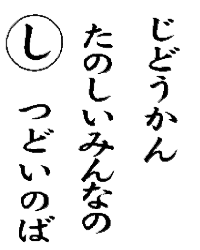 じどうかん
たのしいみんなの
し つどいのば